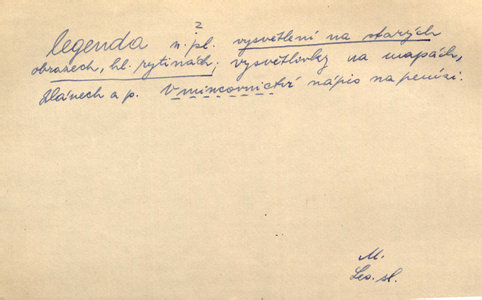 2
legenda n. pl. vysvětlení na starých
obrazech, hl. rytinách; vysvětlivky na mapách,
plánech a p. V mincovnictví nápis na penízi.
M.
sl.